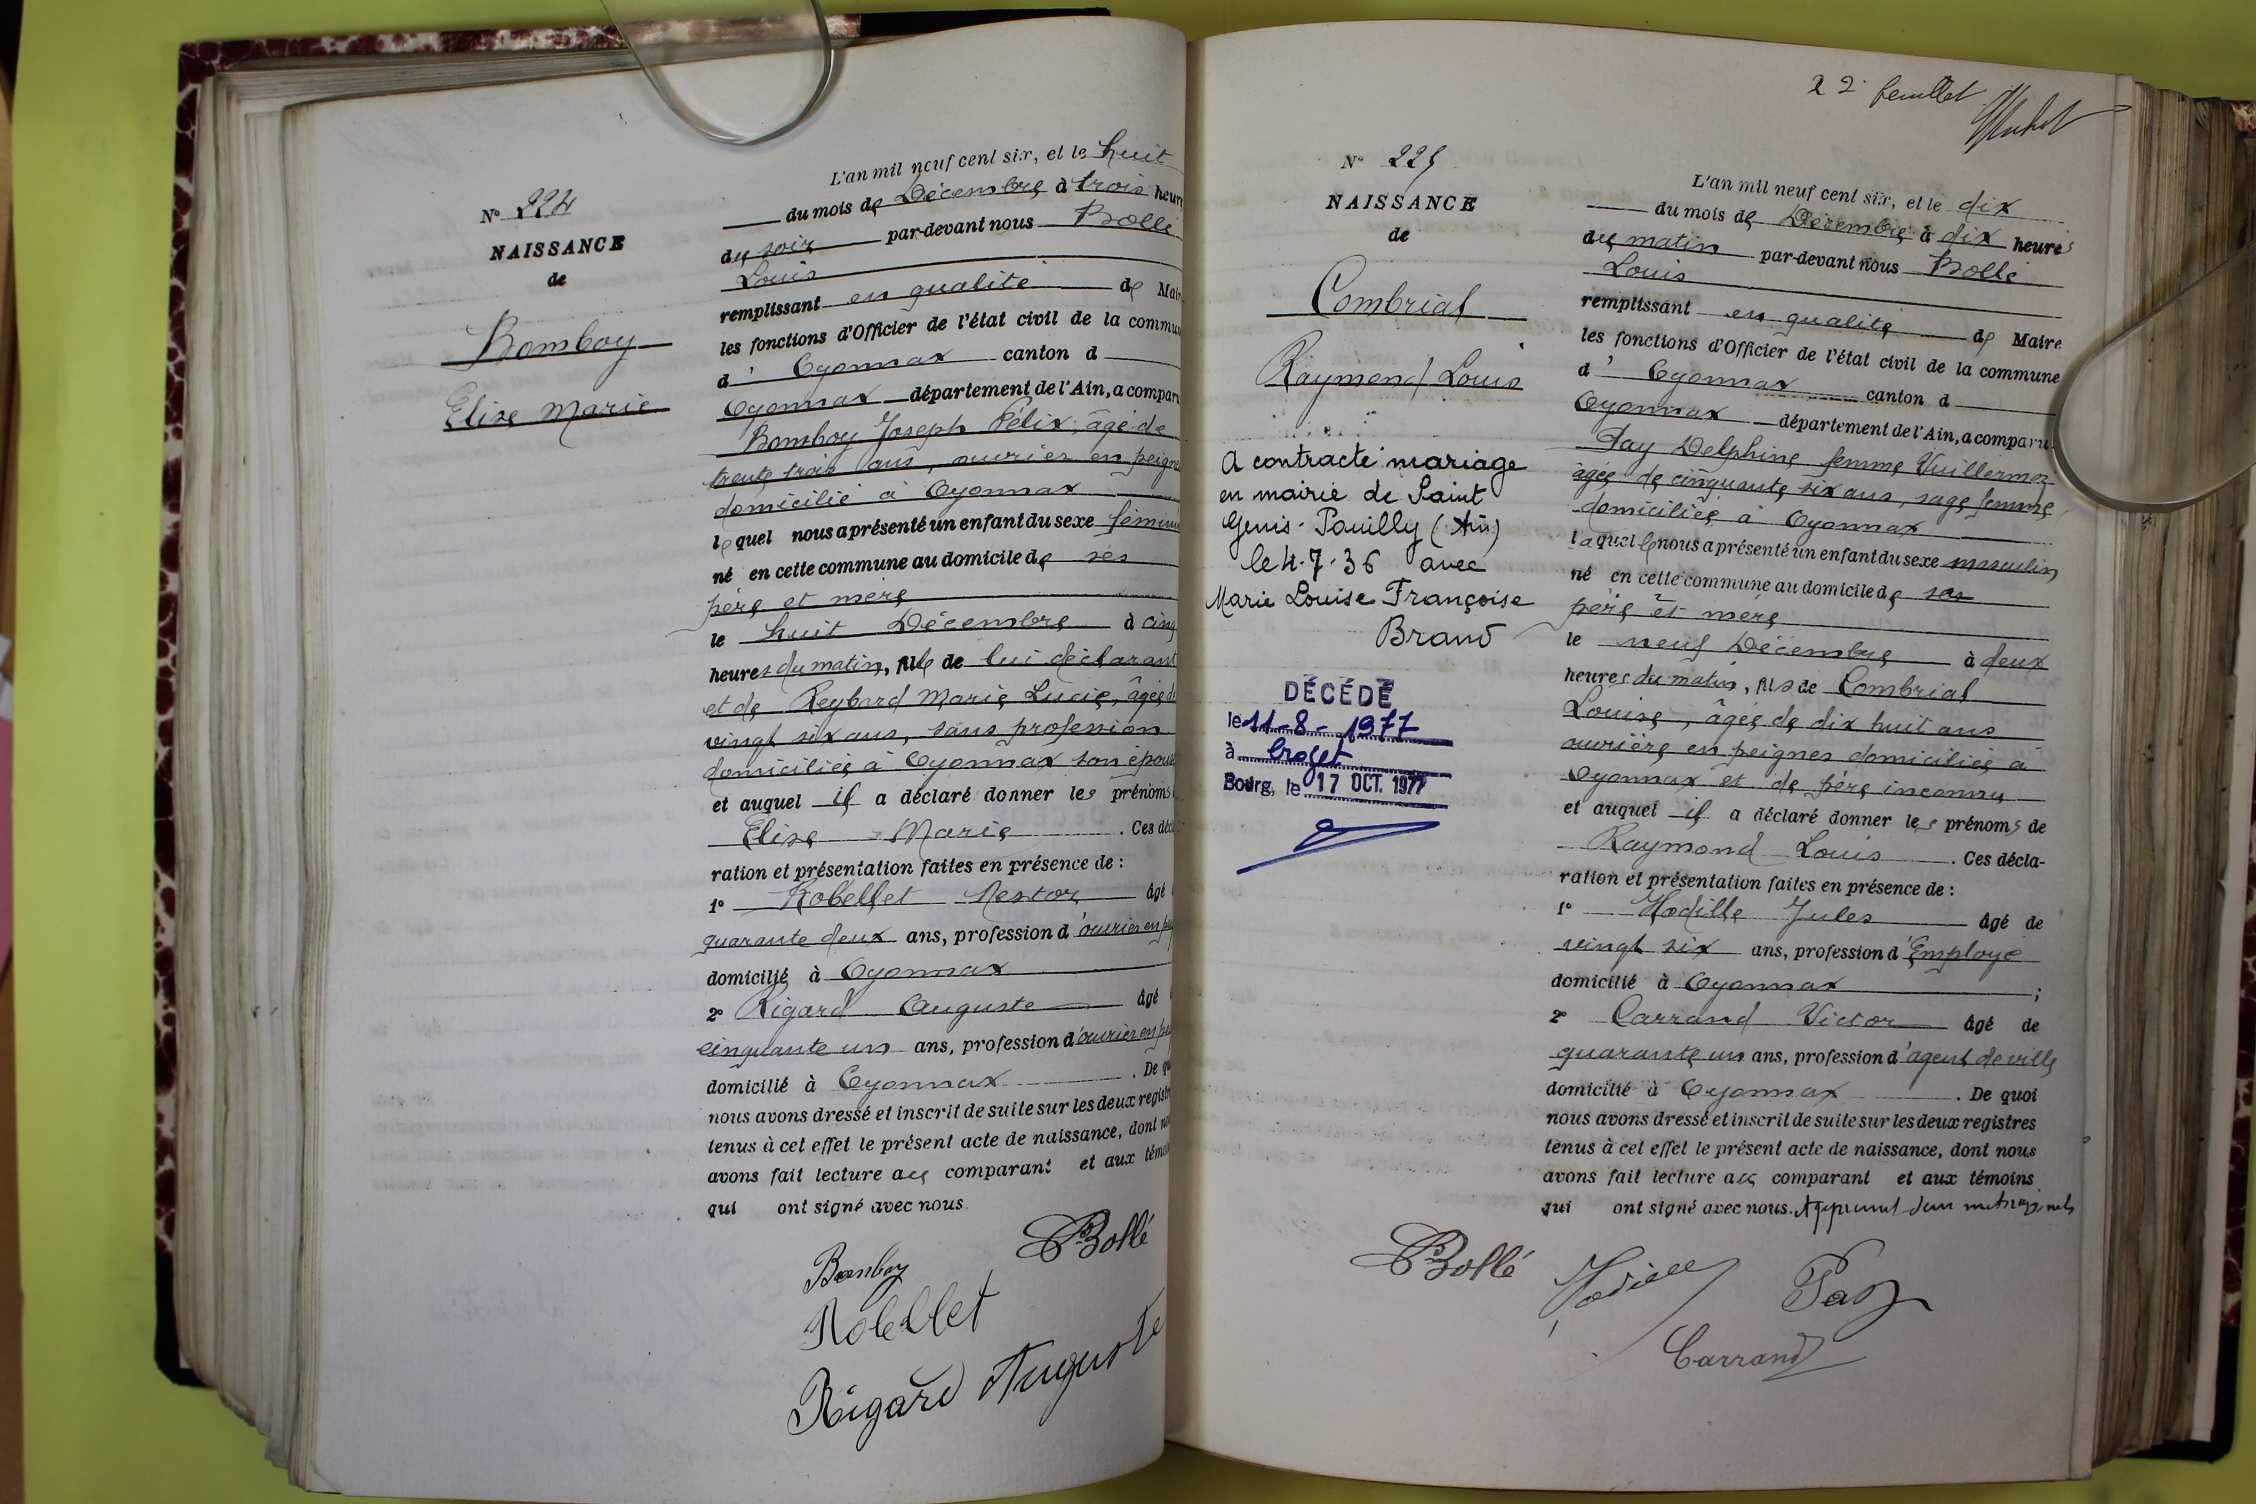 N° 224
NAISSANCE
de
Bomboy
Elise Marie
L'an mil neuf cent six, et le huit
du mois de Décembre à trois heure
du soir par-devant nous Bollé
Louis
remplissant en qualité de Mair
les fonctions d'Officier de l'état civil de la commu
d' Oyonnax canton d
Oyonnax département de l'Ain, a compar
Bomboy Joseph Félix, âgé de
trente trois ans, ouvrier en peigne
domicilié à Oyonnax
lequel nous a présenté un enfant du sexe fémini
né en cette commune au domicile de ses
père et mère
le huit Décembre à cinq
heures du matin, fille de lui déclarant
et de Reybard Marie Lucie, âgée de
vingt six ans, sans profession
domiciliée à Oyonnax son épouse
et auquel il a déclaré donner les prénoms
Elise Marie . Ces décla
ration et présentation faites en présence de :
1° Robellet Nestor âgé
quarante deux ans, profession d'ouvrier en pei
domicilié à Oyonnax
2° Rigard Auguste âgé
cinquante un ans, profession d'ouvrier en pei
domicilié à Oyonnax . De qu
nous avons dressé et inscrit de suite sur les deux registr
tenus à cet effet le présent acte de naissance, dont no
avons fait lecture au comparant et aux témoi
qui ont signé avec nous.
Bomboy Bollé
Robellet
Rigard Auguste
22 feuillet
N° 225
NAISSANCE
de
Combrial
Raymond Louis
A contracté mariage
en mairie de Saint
Genis-Pouilly (Ain)
le 4.7.36 avec
Marie Louise Françoise
Brand
DÉCÉDÉ
le 11-8-1977
à Crozet
Bourg, le 17 OCT. 1977
L'an mil neuf cent six, et le dix
du mois de Décembre à dix heures
du matin par-devant nous Bollé
Louis
remplissant en qualité de Maire
les fonctions d'Officier de l'état civil de la commune
d' Oyonnax canton d
Oyonnax département de l'Ain, a comparu
Pay Delphine femme Vuillermoz
âgée de cinquante six ans, sage femme,
domiciliée à Oyonnax
laquelle nous a présenté un enfant du sexe masculin
né en cette commune au domicile de ses
père et mère
le neuf Décembre à deux
heures du matin, fils de Combrial
Louise, âgée de dix huit ans
ouvrière en peignes domiciliée à
Oyonnax et de père inconnu
et auquel il a déclaré donner les prénoms de
Raymond Louis . Ces décla-
ration et présentation faites en présence de :
1° Hodille Jules âgé de
vingt six ans, profession d'Employé
domicilié à Oyonnax ;
2° Carrand Victor âgé de
quarante un ans, profession d'agent de ville
domicilié à Oyonnax . De quoi
nous avons dressé et inscrit de suite sur les deux registres
tenus à cet effet le présent acte de naissance, dont nous
avons fait lecture au comparant et aux témoins
qui ont signé avec nous.
Bollé Hodille Pay
Carrand